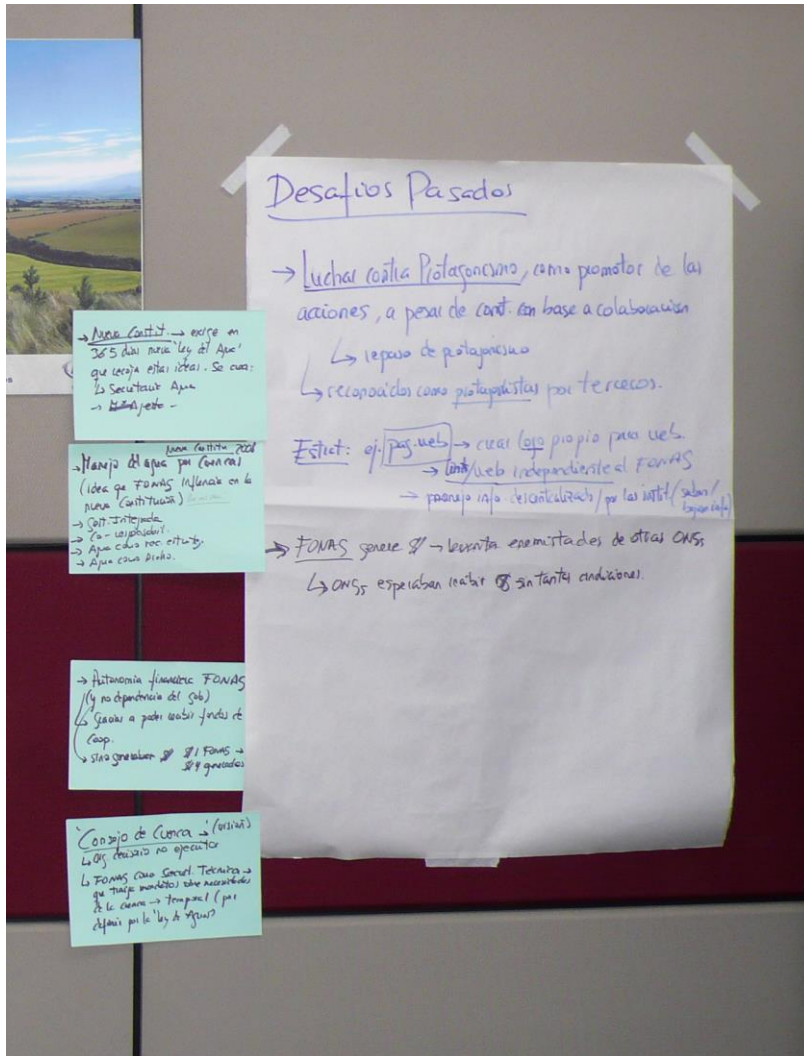 Desafios Pasados
→ Luchar contra Protagonismo, como promotor de las
acciones, a pesar de const. con base a colaboración
↳ repaso de protagonismo
↳ reconocidos como protagonistas por terceros.
Estrat: ej. pag. web → crear logo propio para web.
→ web independiente al FONAG
→ info descentralizado / por las instit.
→ FONAG genere $ → levantar enemistades de otras ONGs
↳ ONGs esperaban recibir $ sin tantas condiciones.
→ Nueva Constit. → exige en
365 dias nueva 'ley del Agua'
que recoja estas ideas. Se crea:
↳ Secretaria Agua
Nueva Constitu 2008
→ Manejo del agua por Cuencas
(idea que FONAG influencia en la
nueva Constitución)
→ Gest. Integrada
→ Co-responsabil.
→ Agua como rec. estratg.
→ Agua como Dcho.
→ Autonomía financiera FONAG
(y no dependencia del gob)
↳ Gracias a poder recibir fondos de
Coop.
→ sino generaban $ $1 FONAG →
generados
'Consejo de Cuenca' → (visión)
↳ Org. decisorio no ejecutor
↳ FONAG como Secret. Técnica →
que traiga mandatos sobre necesidades
de la cuenca → temporal (por
definir por la 'ley de Aguas')